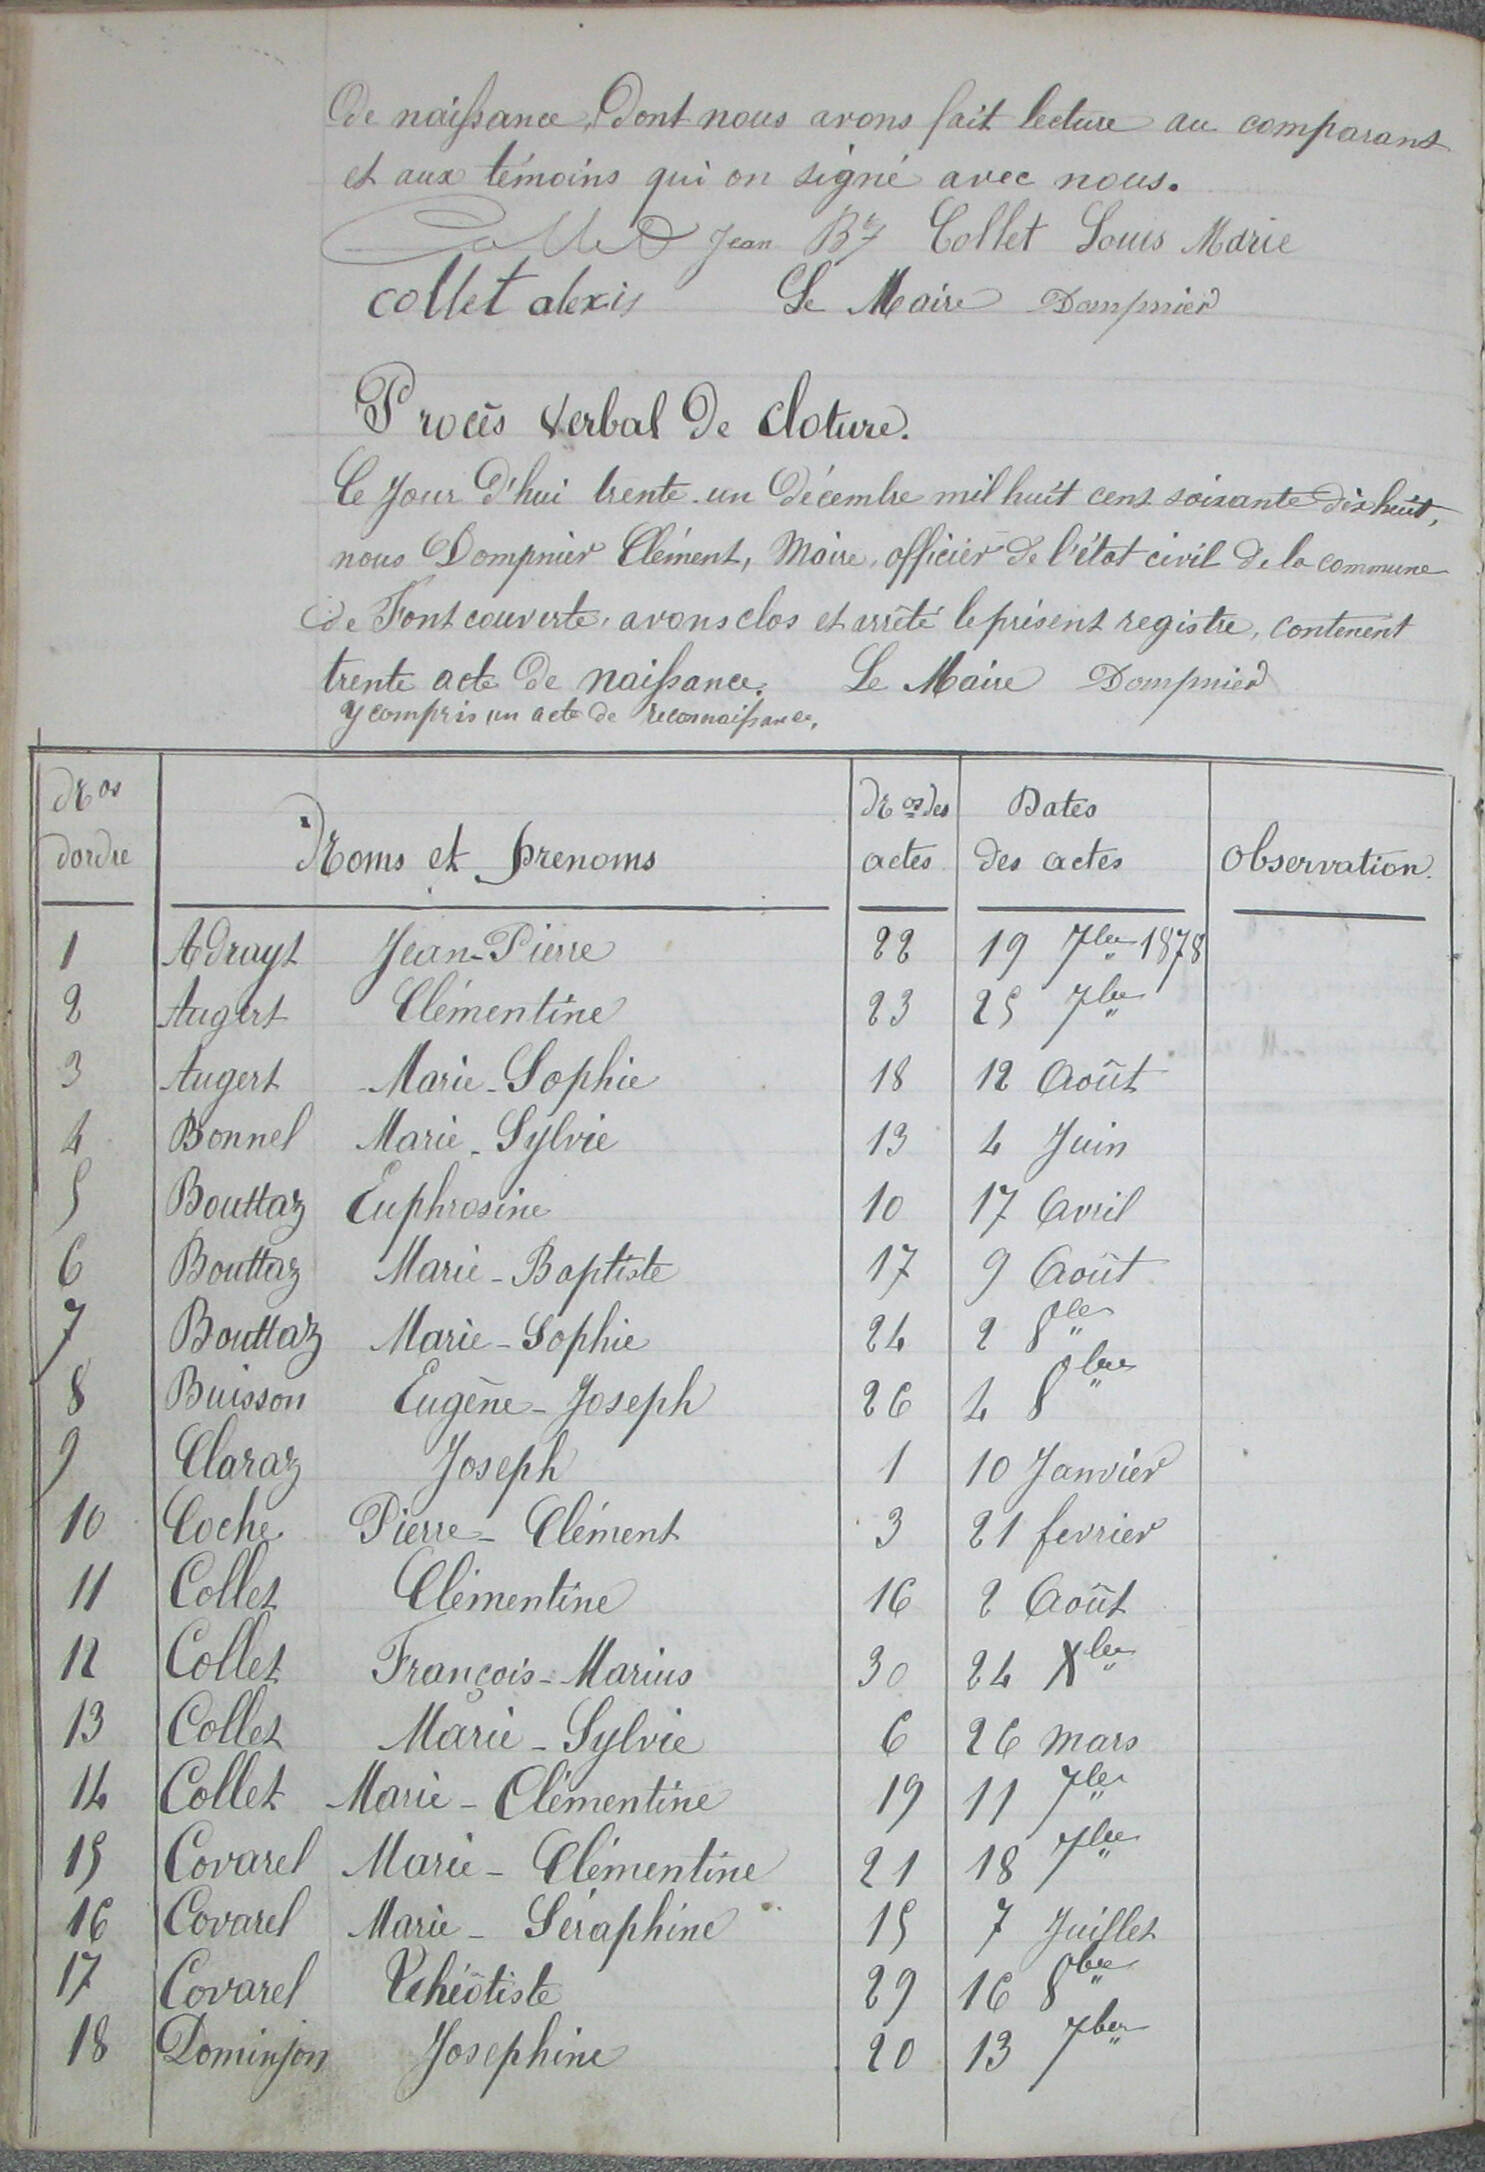 de naissance, dont nous avons fait lecture au comparant
et aux témoins qui on signé avec nous.
Collet Jean Bte Collet Louis Marie
collet alexis Le Maire Dompnier
Procès verbal de cloture.
Ce jour d'hui trente un décembre mil huit cent soixante dix huit,
nous Dompnier Clément, Maire, officier de l'état civil de la commune
de Fontcouverte, avons clos et arrêté le présent registre, contenent
trente acte de naissance. Le Maire Dompnier
y compris un acte de reconnaissance.
Nos dordre Noms et prenoms Nos des actes Dates des actes Observation.
1 Adrayt Jean-Pierre 22 19 7bre 1878
2 Augert Clémentine 23 25 7bre
3 Augert Marie-Sophie 18 12 Août
4 Bonnel Marie-Sylvie 13 4 Juin
5 Bouttaz Euphrosine 10 17 Avril
6 Bouttaz Marie-Baptiste 17 9 Août
7 Bouttaz Marie-Sophie 24 2 8bre
8 Buisson Eugène-Joseph 26 4 8bre
9 Claraz Joseph 1 10 Janvier
10 Coche Pierre-Clément 3 21 fevrier
11 Collet Clémentine 16 2 Août
12 Collet François-Marius 30 24 Xbre
13 Collet Marie-Sylvie 6 26 mars
14 Collet Marie-Clémentine 19 11 7bre
15 Covarel Marie-Clémentine 21 18 7bre
16 Covarel Marie-Séraphine 15 7 Juillet
17 Covarel 29 16 8bre
18 Dominjon Josephine 20 13 7bre